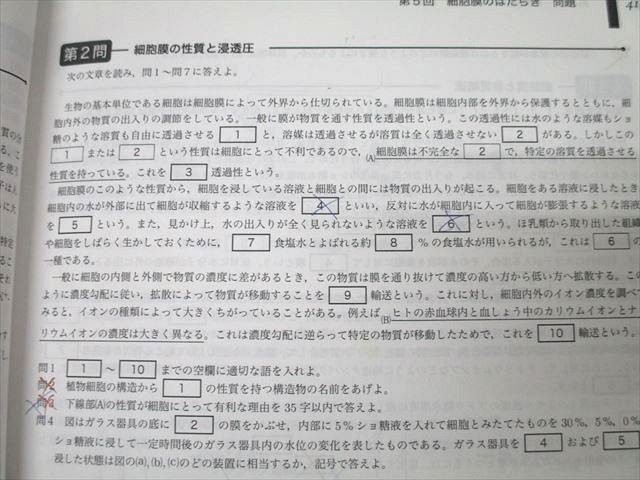 第5回 細胞膜のはたらき 問題
41
第2問 細胞膜の性質と浸透圧
次の文章を読み、問1～問7に答えよ。
生物の基本単位である細胞は細胞膜によって外界から仕切られている。細胞膜は細胞内部を外界から保護するとともに、細
胞内外の物質の出入りの調節をしている。一般に膜が物質を通す性質を透過性という。この透過性には水のような溶媒もショ
糖のような溶質も自由に透過させる 1 と、溶媒は透過させるが溶質は全く透過させない 2 がある。しかしこの
1 または 2 という性質は細胞にとって不利であるので、(A)細胞膜は不完全な 2 で、特定の溶質を透過させる
性質を持っている。これを 3 透過性という。
細胞膜のこのような性質から、細胞を浸している溶液と細胞との間には物質の出入りが起こる。細胞をある溶液に浸したとき
細胞内の水が外部に出て細胞が収縮するような溶液を 4 といい、反対に水が細胞内に入って細胞が膨張するような溶液
を 5 という。また、見かけ上、水の出入りが全く見られないような溶液を 6 という。ほ乳類から取り出した組織
や細胞をしばらく生かしておくために、 7 食塩水とよばれる約 8 %の食塩水が用いられるが、これは 6 の
一種である。
一般に細胞の内側と外側で物質の濃度に差があるとき、この物質は膜を通り抜けて濃度の高い方から低い方へ拡散する。この
ように濃度勾配に従い、拡散によって物質が移動することを 9 輸送という。これに対し、細胞内外のイオン濃度を調べて
みると、イオンの種類によって大きくちがっていることがある。例えば、(B)ヒトの赤血球内と血しょう中のカリウムイオンとナト
リウムイオンの濃度は大きく異なる。これは濃度勾配に逆らって特定の物質が移動したためで、これを 10 輸送という。
問1 1 ～ 10 までの空欄に適切な語を入れよ。
問2 植物細胞の構造から 1 の性質を持つ構造物の名前をあげよ。
問3 下線部(A)の性質が細胞にとって有利な理由を35字以内で答えよ。
問4 図はガラス器具の底に 2 の膜をかぶせ、内部に5%ショ糖液を入れて細胞とみたてたものを30%, 5%, 0%
ショ糖液に浸して一定時間後のガラス器具内の水位の変化を表したものである。ガラス器具を 4 および 5
浸した状態は図の(a), (b), (c)のどの装置に相当するか、記号で答えよ。